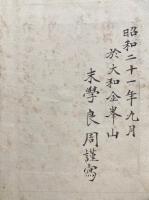 昭和二十一年九月
於大和金峯山
末學良周謹寫